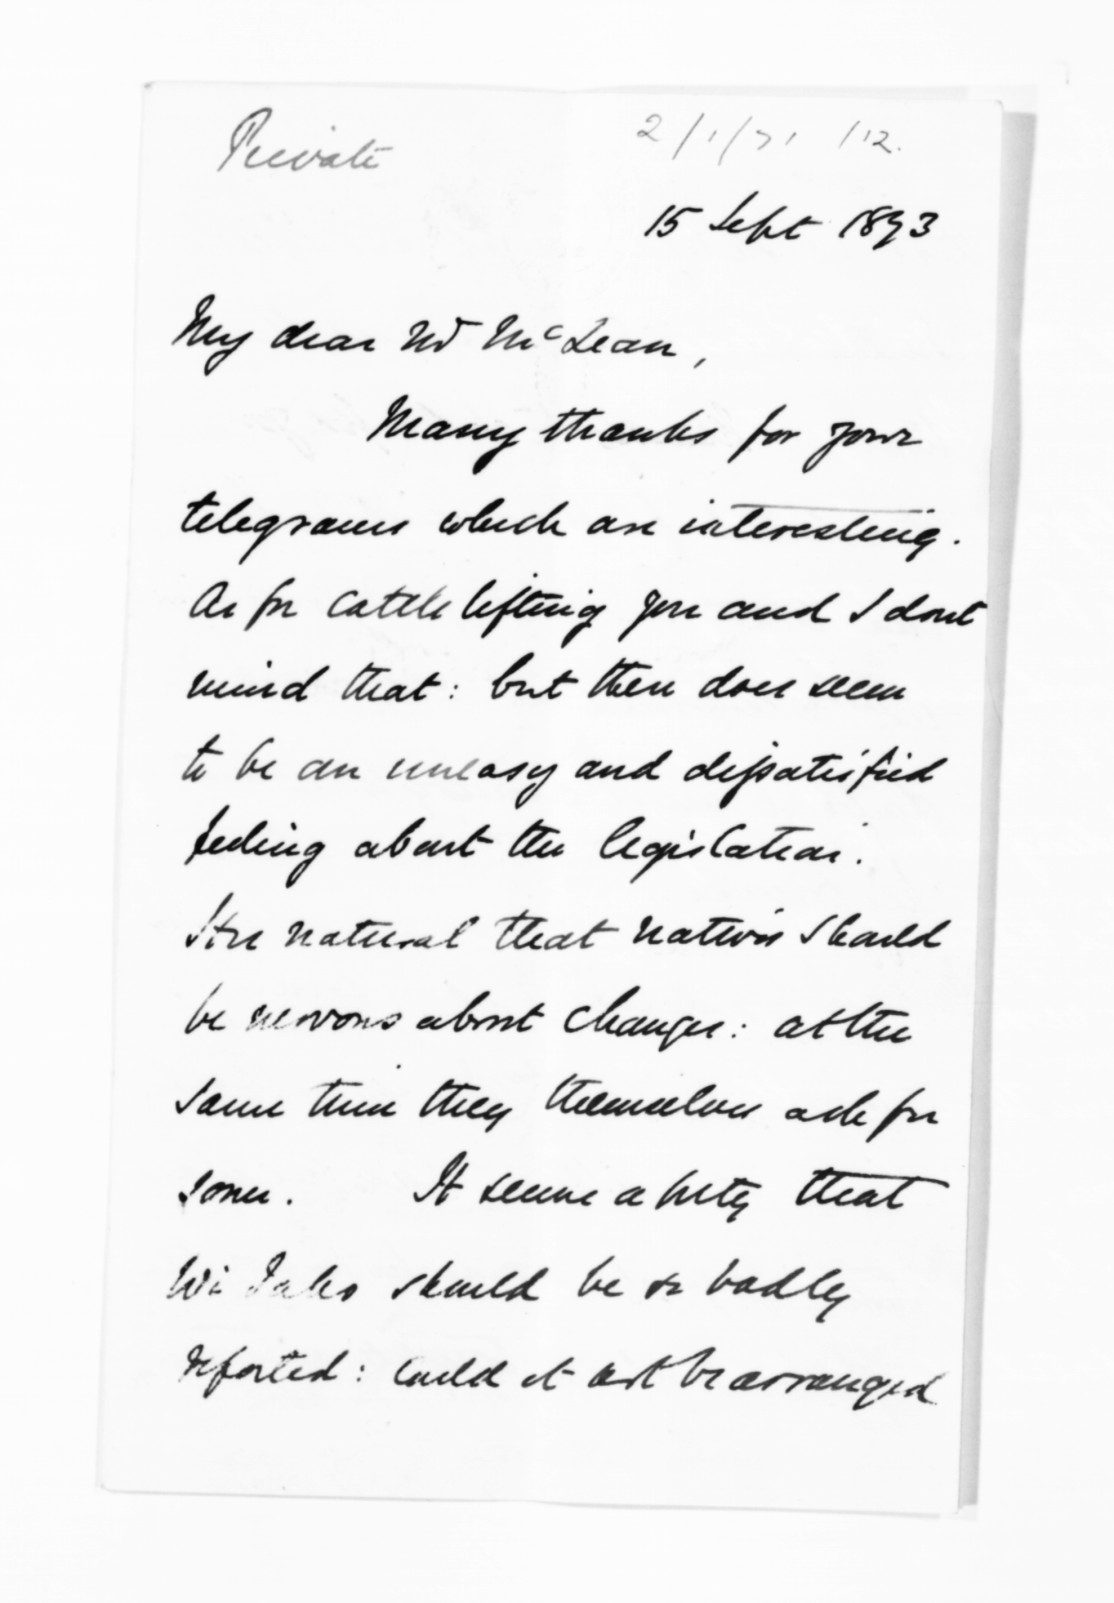 Private
15 Sept 1873
My dear Mr McLean,
Many thanks for your
telegrams which are interesting.
As for cattle lifting you and I dont
mind that: but there does seem
to be an uneasy and dissatisfied
feeling about the legislation.
It is natural that natives should
be nervous about changes: at the
same time they themselves ask for
some. It seems a pity that
Wi Tako should be so badly
reported: could it not be arranged